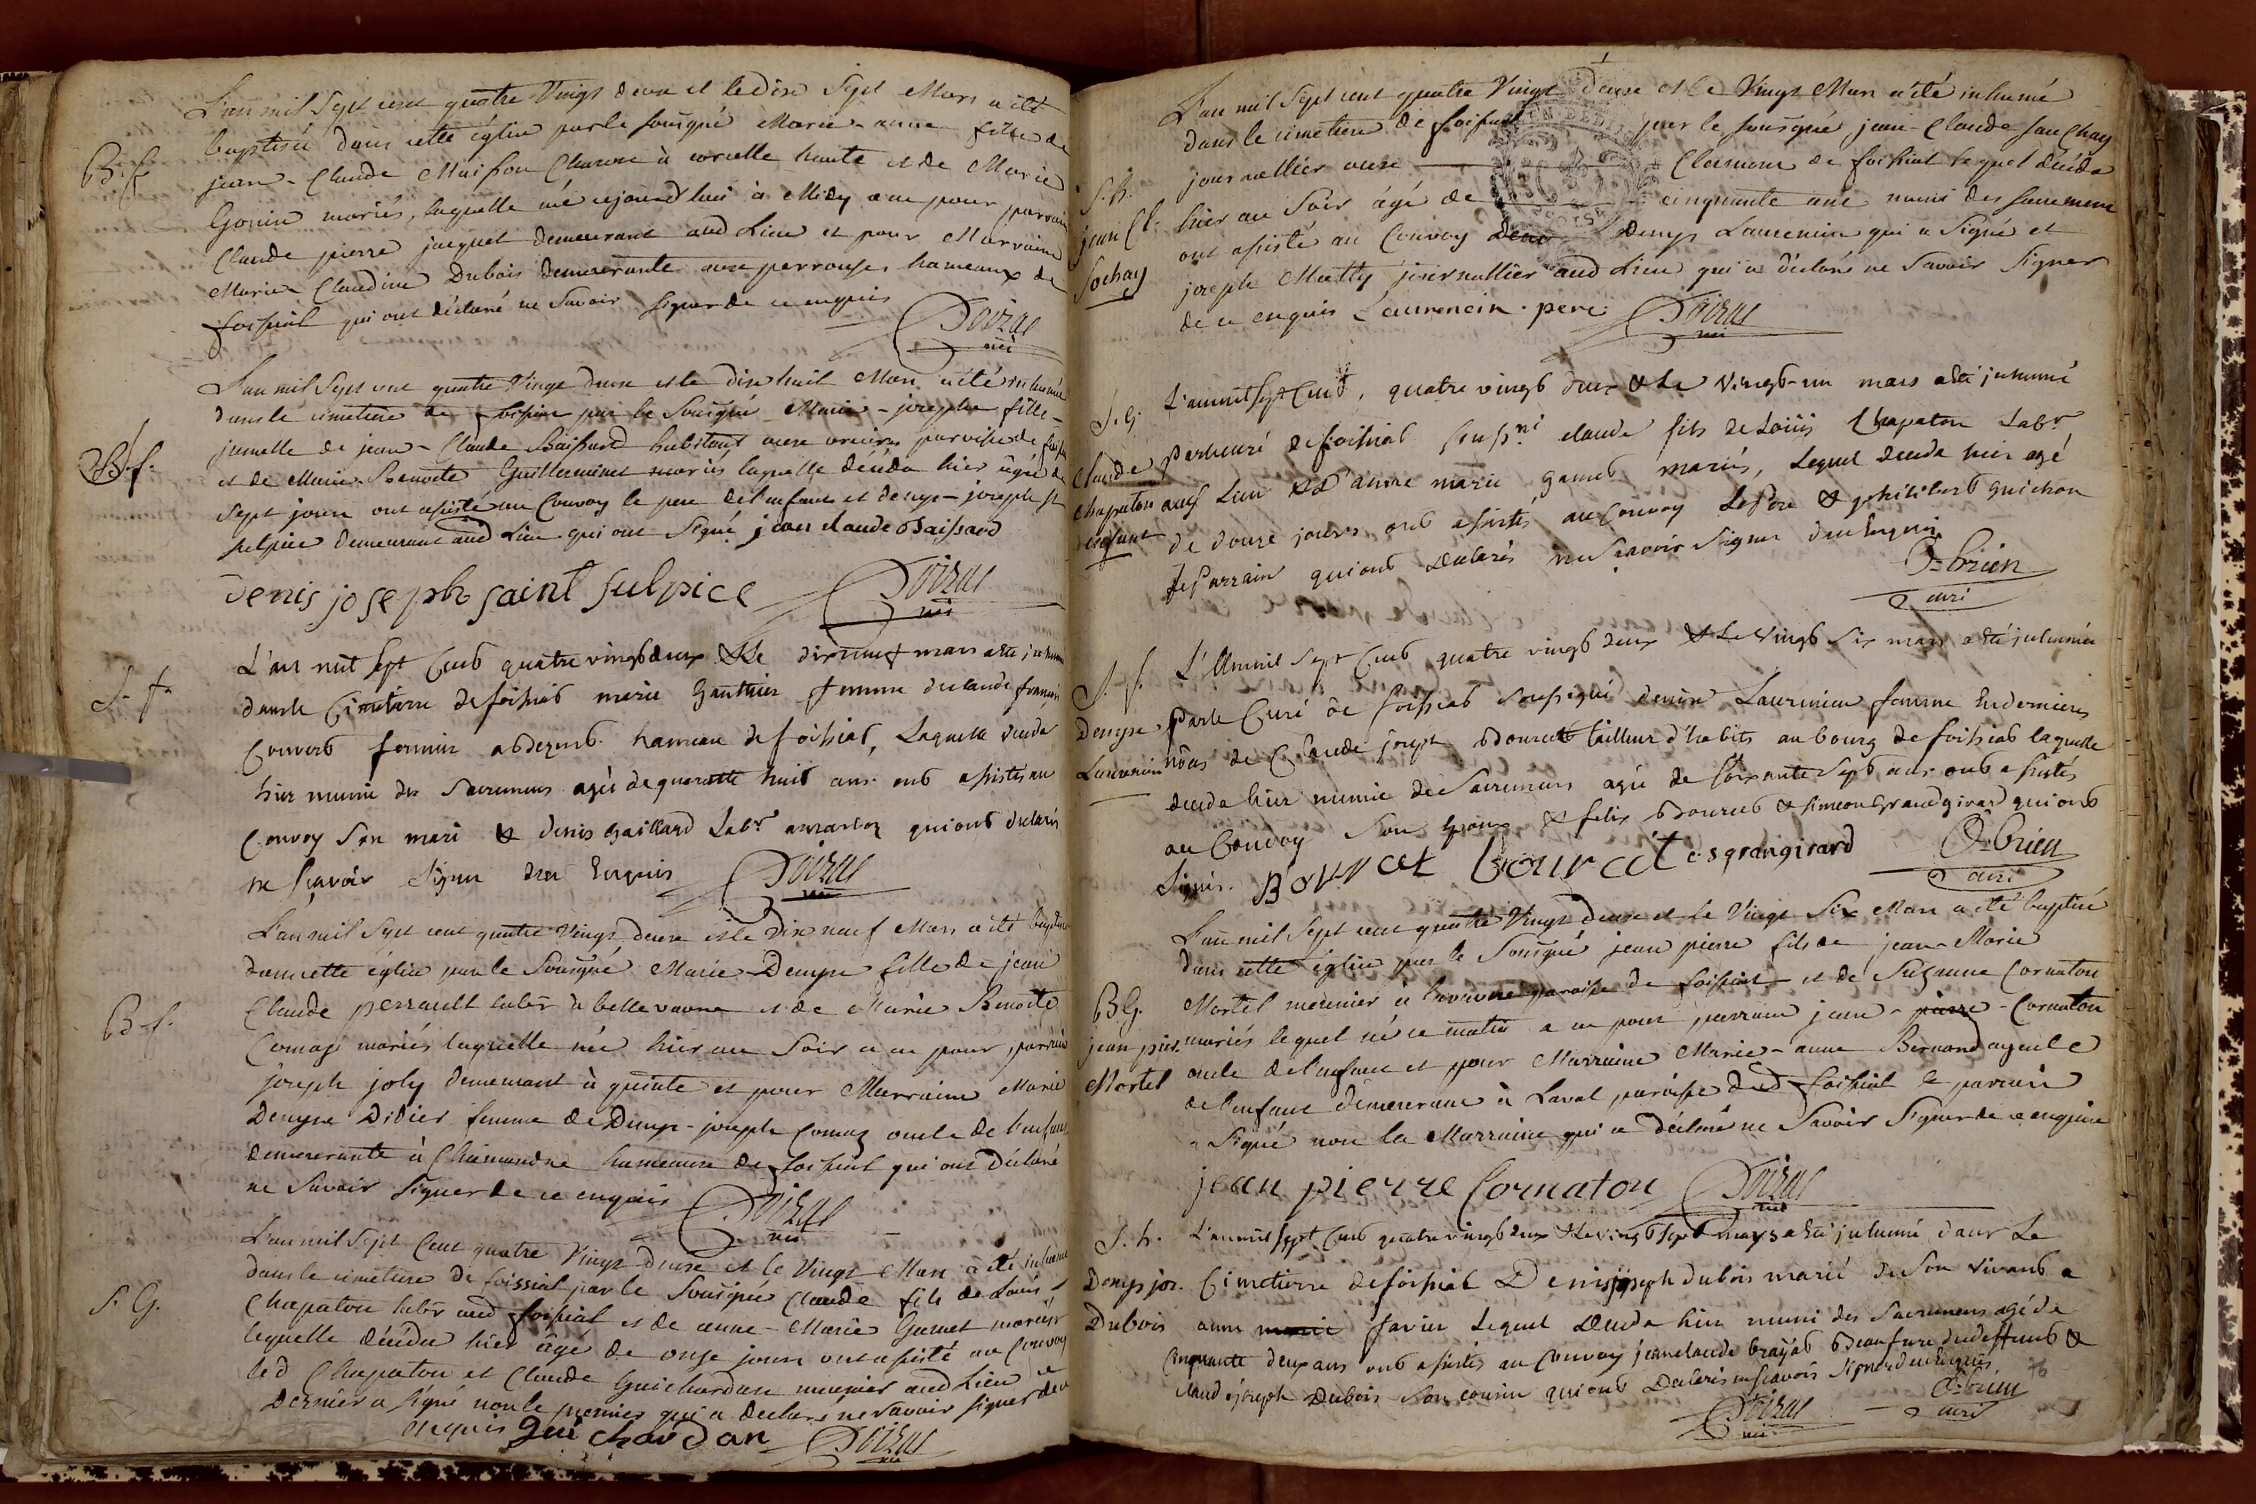 L'an mil Sept cent quatre Vingt deux et le dix Sept Mars a été
B. f. baptisée dans cette église par le sousigné Marie-anne fille de
jean-Claude Maisson Charon à corcelle haute et de Marie
Gonin mariés, laquelle née cejourd'hui à Midy a eu pour parrain
Claude pierre jacquet demeurant aud Lieu et pour Marraine
Marie Claudine Dubois demeurante aux perrouses hameaux de
foissiat qui ont déclaré ne Savoir Signer de ce enquis
Poizat
vic
L'an mil Sept cent quatre Vingt deux et le dix huit Mars a été inhumée
dans le cimetiere de foissiat par le Sousigné Marie-josephe fille
S. f. jumelle de jean-Claude Baissard habitant aux
et de Marie Benoite Guillerminet mariés laquelle décéda hier âgée de
Sept jours ont assisté au Convoy le pere de l'enfant et denys-joseph St
sulpice demeurant aud Lieu qui ont Signé jean claude Baissard
denis joseph saint Sulpice Poizat
vic
L'an mil Sept Cent quatre vingt deux & Le dix neuf mars a été inhumé
S. f. dans le Cimetiere de foissiat marie Gauthier femme de claude françois
Convert fermier hameau de foissiat, Laquelle décéda
hier munie des Sacremens agée de quarante huit ans. ont assistés au
Convoy Son mari & denis Gaillard Labr. a marloz qui ont declarés
ne sçavoir Signer de ce Enquis Poizat
vic
L'an mil Sept cent quatre Vingt deux et le Dix neuf Mars a été baptisée
dans cette église par le Sousigné Marie-Denyse fille de jean
Claude perrault labr à bellevavre et de Marie Benoite
B. f. Comas mariés laquelle née hier au Soir a eu pour parrain
joseph joly demeurant à quinte et pour Marraine Marie
Denyse Didier femme de Denys-joseph Comas oncle de l'enfant
demeurante à Chamandre hameaux de foissiat qui ont Déclaré
ne Savoir Signer de ce enquis Poizat
vic
L'an mil Sept Cent quatre Vingt deux et le Vingt Mars a été inhumé
dans le cimetiere de foissiat par le Sousigné Claude fils de Louis
S. G. Chapaton labr aud foissiat et de anne-Marie Gamet mariés
lequelle décéda hier âgé de onze jours ont assisté au Convoy
led Chapaton et Claude Guichardan meunier aud Lieu ce
Dernier a Signé non le premier qui a declaré ne Savoir signer de ce
enquis Guichardan Poizat
vic
L'an mil Sept cent quatre Vingt deux et le Vingt Mars a été inhumé
dans le cimetiere de foissiat par le sousigné jean-Claude Sauchay
S. h. journallier aux Claisonne de foissiat lequel décéda
jean Cl. hier au Soir âgé de cinquante ans muni des Sacremens
Sochay ont assisté au Convoy Denys Laurencin qui a Signé et
joseph Maitty journallier aud Lieu qui a déclaré ne Savoir Signer
de ce enquis Laurencin père Poizat
vic
S. G. L'an mil Sept Cent, quatre vingt deux & Le Vingt-un mars a été inhumé
Claude par le curé de foissiat sousné claude fils de Loüis Chapaton Labr
chapaton aud Lieu & d'anne marie gamet mariés, Lequel deceda hier agé
enfant de douze jours ont assistés au Convoy Le Pere & philibert guichon
le Parrain qui ont declarés ne Scavoir Signer de ce Enquis.
O-brien
curé
S. f. L'an mil Sept Cent quatre vingt deux & Le vingt Six mars a été inhumée
Denyse par le Curé de foissiat Soussigné denise Laurencin femme En dernieres
Laurencin nôces de Claude joseph Bourcet tailleur d'habits au bourg de foissiat laquelle
deceda hier munie des Sacremens agée de soixante Sept ans ont assistés
au Convoy Son Epoux & felix Bourcet & simeon Grandgirard qui ont
Signés. Bourcet bourcet c. s grangirard O-brien
curé
L'an mil Sept cent quatre Vingt deux et le Vingt Six Mars a été baptisé
dans cette église par le Sousigné jean pierre fils de jean-Marie
B G. Mortel meunier à paroisse de foissiat et de Suzanne Cornaton
jean pier. mariés lequel né ce matin a eu pour parrain jean-pierre-Cornaton
Mortel oncle de l'enfant et pour Marraine Marie-anne Bernard ayeule
de l'enfant demeurant à Laval paroisse dud foissiat le parrain
a Signé non la Marraine qui a déclaré ne Savoir Signer de ce enquise
jean pierre Cornaton Poizat
vic
S. h. L'an mil Sept Cent quatre vingt deux & Le vingt Sept mars a été inhumé dans Le
Denys jos. Cimetierre de foissiat Denis joseph dubois marié de Son vivant a
Dubois anne marie favier Lequel deceda hier muni des Sacremens agé de
Cinquante deux ans ont assistés au Convoy jean claude brayat Beaufrere dudeffunt &
claude joseph Dubois Son cousin qui ont Declarés ne Scavoir Signer de ce Enquis.
Poizat O-brien
vic curé